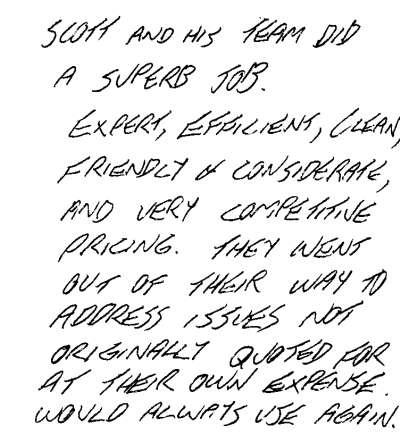 SCOTT AND HIS TEAM DID
A SUPERB JOB.
EXPERT, EFFICIENT, CLEAN,
FRIENDLY & CONSIDERATE,
AND VERY COMPETITIVE
PRICING. THEY WENT
OUT OF THEIR WAY TO
ADDRESS ISSUES NOT
ORIGINALLY QUOTED FOR
AT THEIR OWN EXPENSE.
WOULD ALWAYS USE AGAIN.